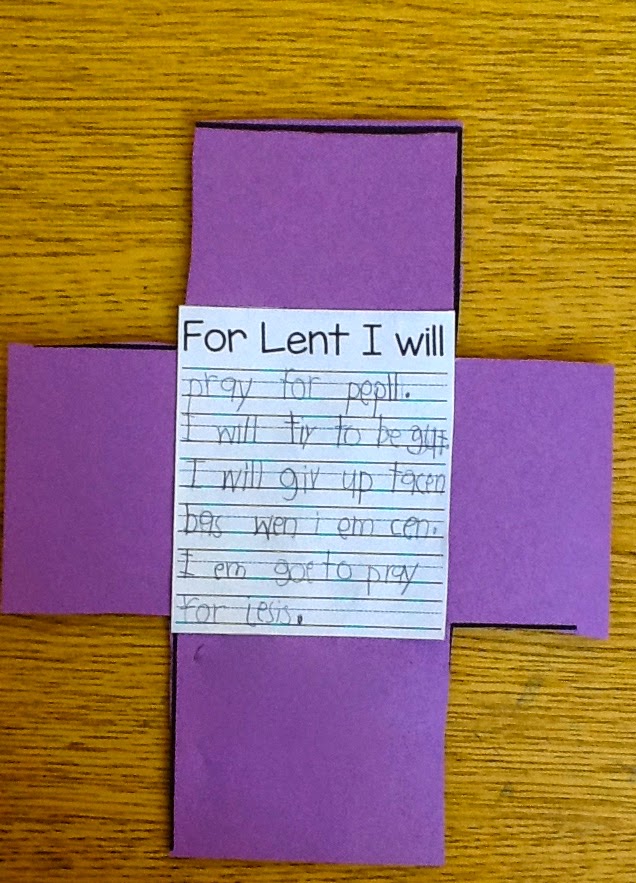 For Lent I will
pray for pepll.
I will tiy to be gut
I will giv up tacen
bas wen i em cen.
I em goe to pray
for iesis.